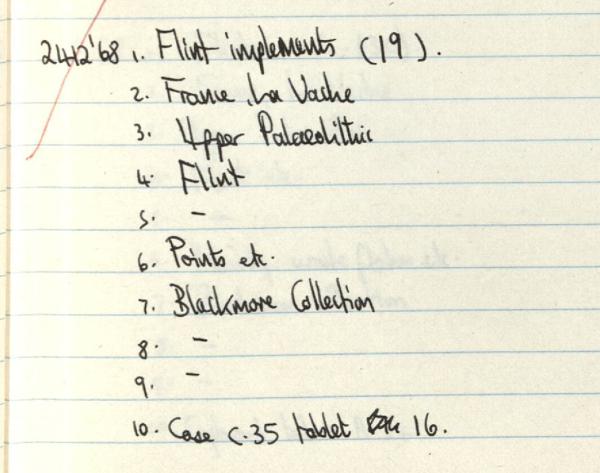 2412'68 1. Flint implements (19).
2. France, La Vache
3. Upper Palaeolithic
4. Flint
5. -
6. Points etc.
7. Blackmore Collection
8. -
9. -
10. Case C.35 tablet 16.